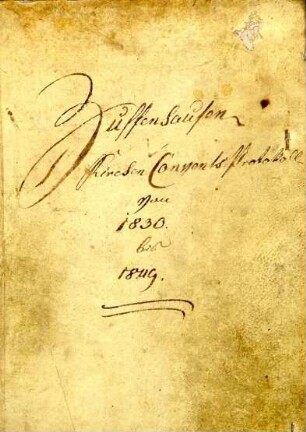 Zuffenhausen
Kirchen Convents Protokoll
von
1830.
bis
1849.